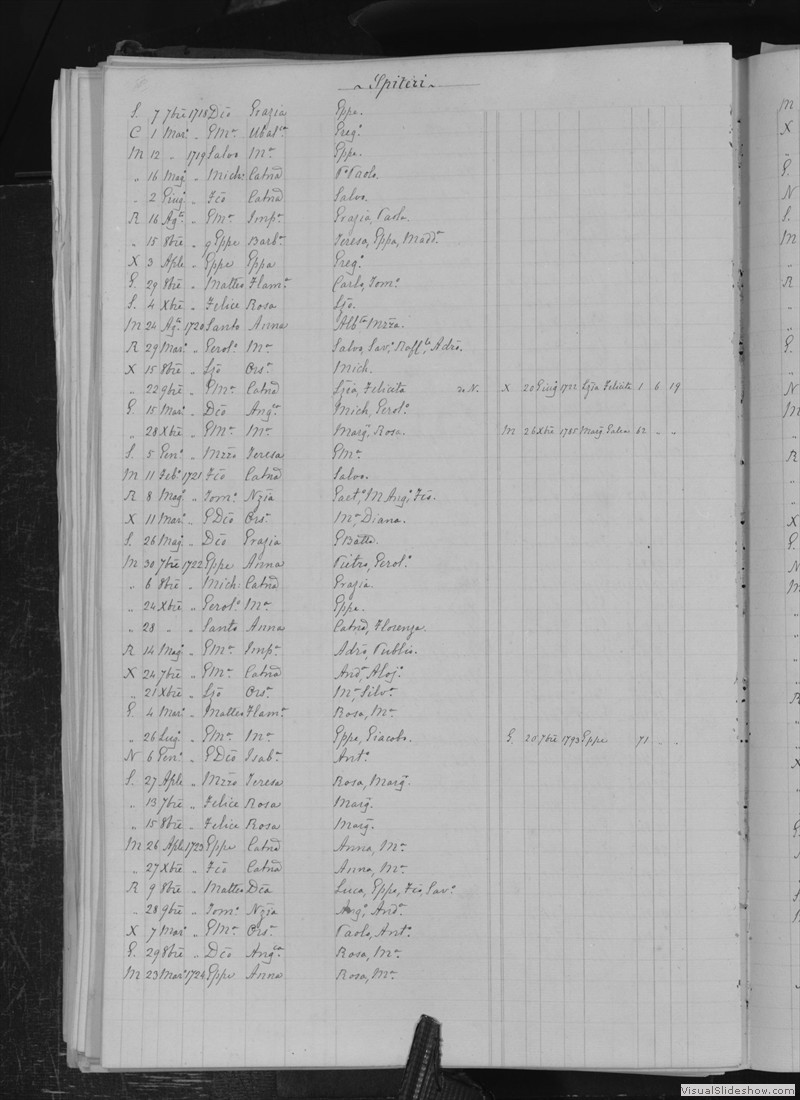 Spiteri
S. 7 7bre 1718 Dco Grazia Gppe.
C 1 Marzo „ GMa. Ubalta. Greg.
M 12 „ 1719 Salvo Ma. Gppa.
„ 16 Mag. „ Mich: Catna Po Paolo.
„ 2 Giug. „ Fco Catna Salvo.
R 16 Agto. „ GMa. Impa. Grazia, Paola.
„ 15 8bre „ q Gppe Barba. Teresa, Gppa, Madda.
X 3 Aple „ Gppe Gppa Grego.
G. 29 8bre „ Matteo Flama. Carlo, Tomo.
S. 4 Xbre „ Felice Rosa Ljo.
M 24 Agto. 1720 Santo Anna Albta Mzza.
R 29 Marzo. „ Gerolo. Ma. Salvo, Savo, Raffle, Adro.
X 15 8bre „ Ljo Orsa. Mich.
„ 22 9bre „ GMa. Catna Ljza, Felicita 2o N. X 20 Giug 1722 Ljza Felicita 1 6 19
G. 15 Marzo. „ Dco Anga. Mich, Gerolo.
„ 28 Xbre „ GMa. Ma. Marga, Rosa. M 26 Xbre 1785 Marga Galea 62 „ „
S. 5 Geno. „ Mzzo Teresa GMa.
M 11 Febo. 1721 Fco Catna Salvo.
R 8 Mago. „ Tomo. Nzia Gaeto, M Ango, Fco.
X 11 Marzo. „ G Dco Orsa. Ma Diana.
S. 26 Mag. „ Dco Grazia GBatta.
M 30 7bre 1722 Gppe Anna Pietro, Gerolo.
„ 6 8bre „ Mich: Catna Grazia.
„ 24 Xbre „ Gerolo. Ma. Gppa.
„ 28 „ „ Santo Anna Catna, Florenza.
R 14 Mago. „ GMa. Impa. Adro, Publio.
X 24 7bre „ GMa. Catna Anda, Alojo.
„ 21 Xbre „ Ljo Orsa. Ma, Silva.
G. 4 Marzo. „ Matteo Flama. Rosa, Ma.
„ 26 Lug. „ GMa. Ma. Gppe, Giacobo. G. 20 7bre 1793 Gppe 71 „ „
N 6 Geno. „ G Dco Isaba. Anto.
S. 27 Aple „ Mzzo Teresa Rosa, Marga.
„ 13 7bre „ Felice Rosa Marga.
„ 15 8bre „ Felice Rosa Marga.
M 26 Aple 1723 Gppe Catna Anna, Ma.
„ 27 Xbre „ Fco Catna Anna, Ma.
R 9 8bre „ Matteo Dca Luca, Gppe, Fco, Savo.
„ 28 9bre „ Tomo. Nzia Ango, Anda.
X 7 Marzo „ GMa. Orsa. Paolo, Anto.
G. 29 8bre „ Dco Anga. Rosa, Ma.
M 23 Marzo 1724 Gppe Anna Rosa, Ma.
VisualSlideshow.com